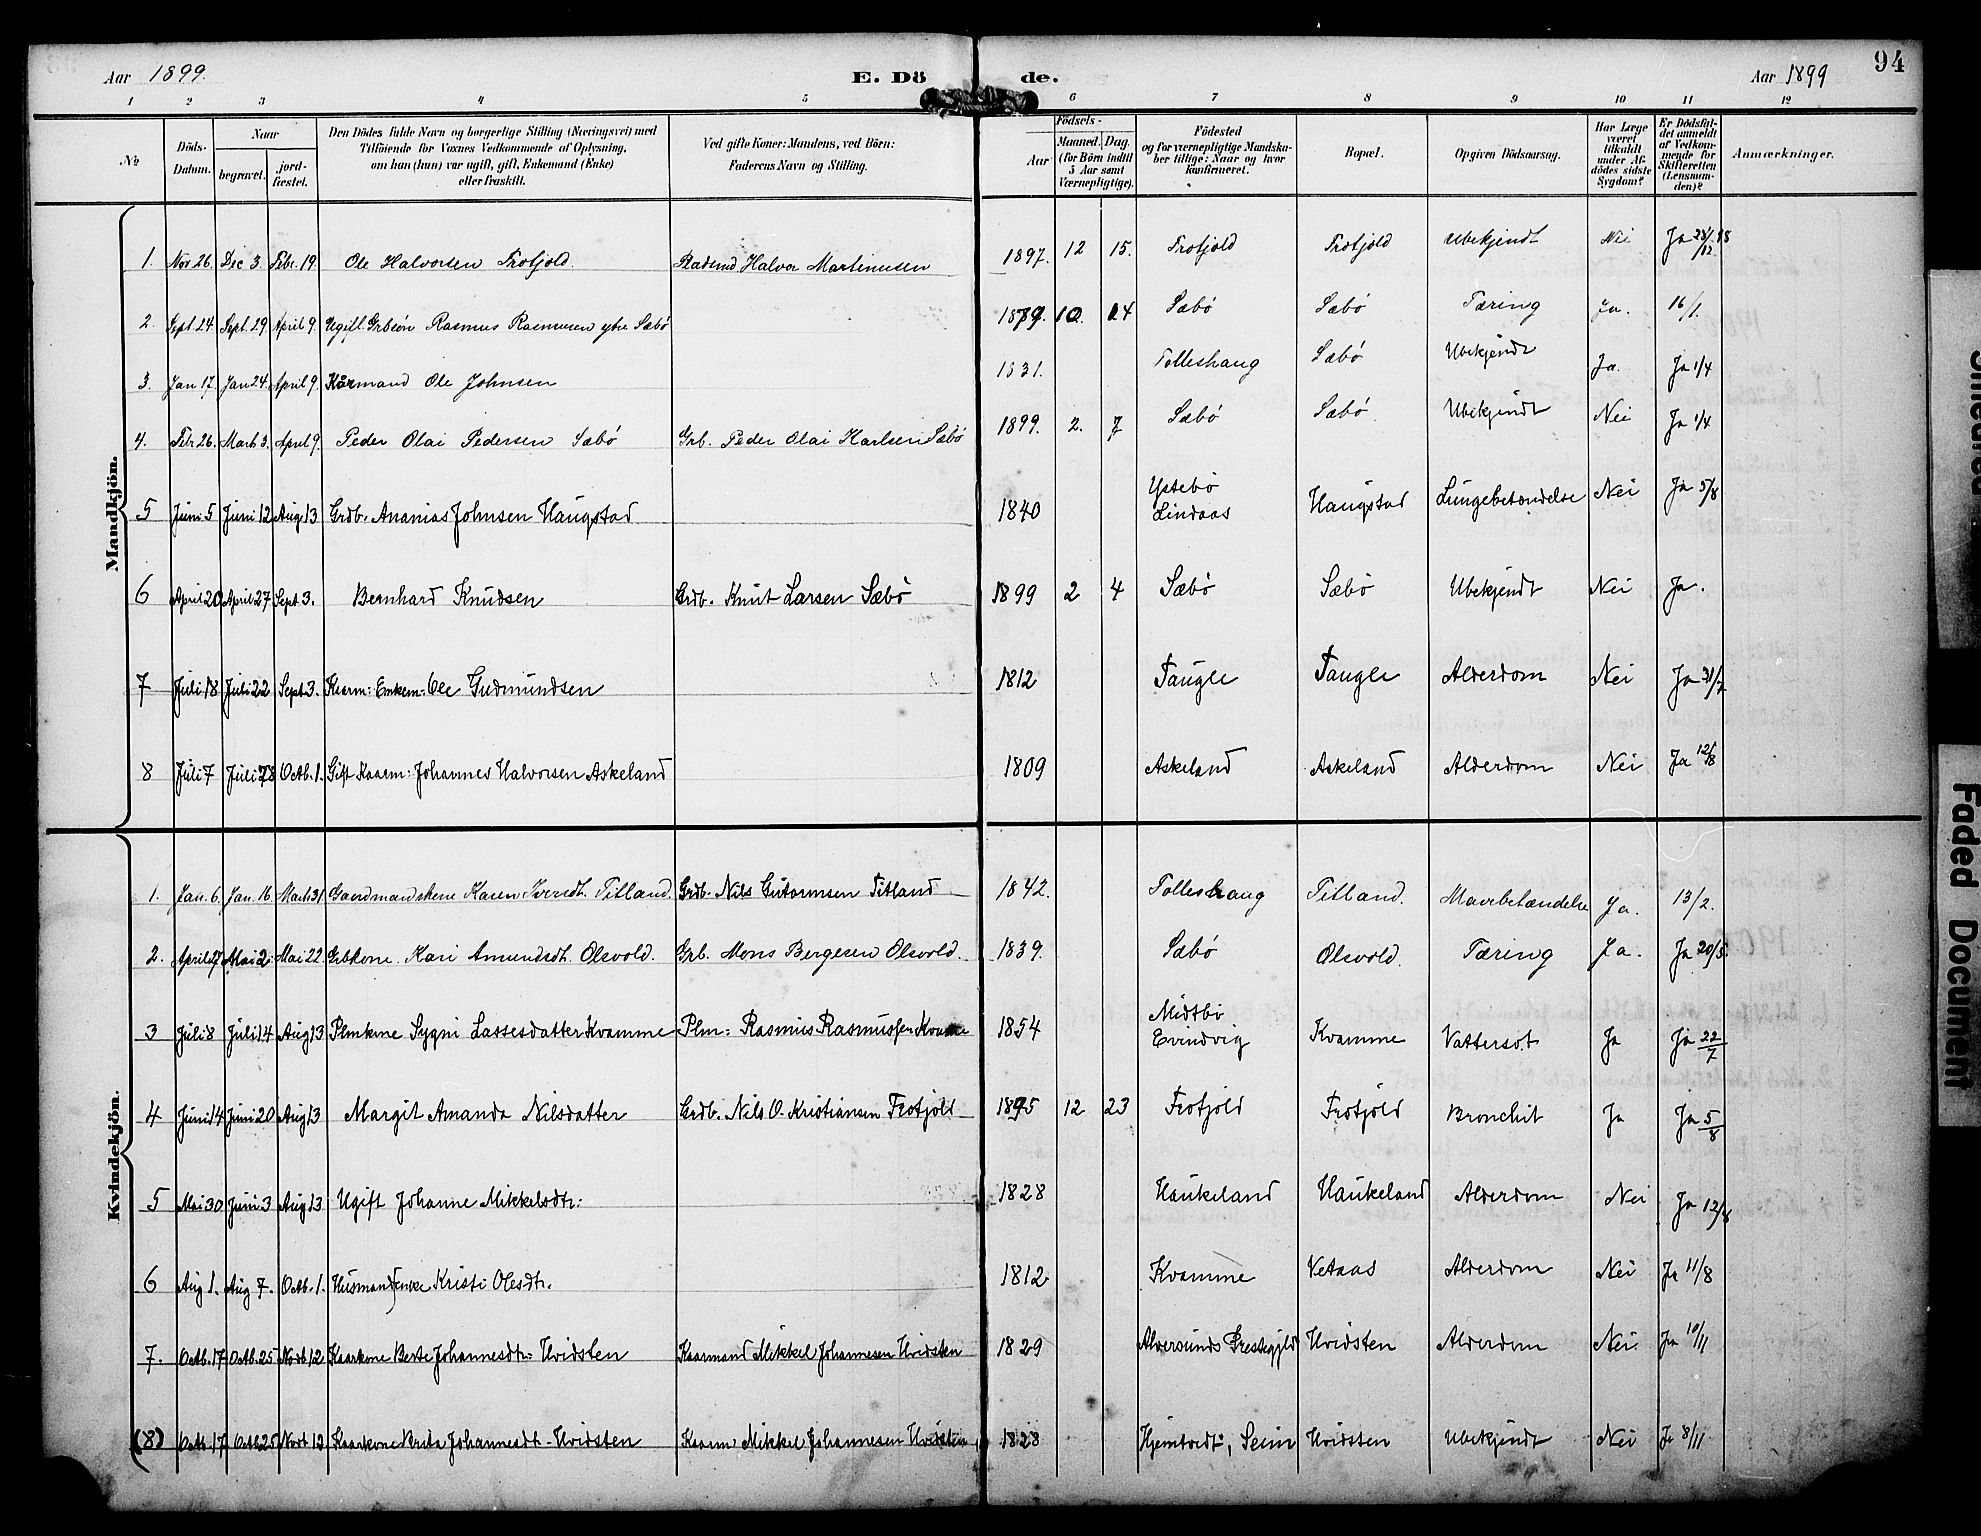 Aar 1899. E. Dö de. Aar 1899 94
1 2 3 4 5 6 7 8 9 10 11 12
№
Döds-Datum.
Naar
begravet.
jord-fæstet.
Den Dödes fulde Navn og borgerlige Stilling (Næringsvei) med
Tilföiende for Voxnes Vedkommende af Oplysning,
om han (hun) var ugift, gift, Enkemand (Enke)
eller fraskilt.
Ved gifte Koner: Mandens, ved Börn:
Faderens Navn og Stilling.
Födsels-
Aar
Maaned. Dag.
(for Börn indtil
5 Aar samt
Værnepligtige).
Födested
og for værnepligtige Mandska-
ber tillige: Naar og hvor
konfirmeret.
Bopæl.
Opgiven Dödsaarsag.
Har Læge
været
tilkaldt
under Af-
dödes sidste
Sygdom?
Er Dödsfal-
det anmeldt
af Vedkom-
mende for
Skifteretten
(Lensman-
den)?
Anmærkninger.
Mandkjön.
1. Nov 26. Dec 3. Febr. 19 Ole Halvorsen Frotjold. Halvor Martinussen 1897. 12 15. Frotjold Frotjold Ubekjendt Nei Ja
2. Sept. 24 Sept. 29 April 9. Ugift. Grbsön Rasmus Rasmussen ytre Sæbö 10. Sæbö Sæbö Tæring Ja. 16/1.
3. Jan 17. Jan 24. April 9. Kårmand Ole Johnsen 1831. Tolleshaug Sæbö Ubekjendt Ja. Ja 1/4
4. Febr. 26. Marts 3. April 9. Peder Olai Pedersen Sæbö Grb. Peder Olai Karlsen Sæbö 1899. 2. 7 Sæbö Sæbö Ubekjendt Nei Ja 1/4
5 Juni 5 Juni 12 Aug. 13 Grdb. Ananias Johnsen Haugstad 1840 Ystebö Lindaas Haugstad Lungebetændelse Nei Ja 5/8
6 April 20 April 27 Sept 3. Bernhard Knudsen Grdb. Knut Larsen Sæbö 1899 2 4 Sæbö Sæbö Ubekjendt Nei Ja.
7 Juli 18 Juli 22 Sept 3. Kaarm: Enkem: Ole Gudmundsen 1812 Taugle Taugle Alderdom Nei Ja 31/7
8 Juli 7 Juli Octb. 1. Gift Kaarm: Johannes Halvorsen Askeland 1809 Askeland Askeland Alderdom Nei Ja 12/8
Kvindekjön.
1. Jan. 6. Jan. 16 Marts 31. Gaardmandskone Karen Iversdt. Titland. Grdb. Nils Guttormsen Titland 1842. Tolleshaug Titland. Mavebetændelse Ja. 13/2.
2. April Mai 2. Mai 22 Grbkone. Kari Amundsdt. Olsvold. Grb. Mons Bergesen Olsvold. 1839. Sæbö Olsvold. Tæring Ja. Ja 20/5.
3 Juli 8 Juli 14 Aug 13 Plmkone Sygni Lassesdatter Kvamme Plm: Rasmus Rasmussen Kvamme 1854 Midtbö Evindvig Kvamme Vattersot Ja Ja 22/7
4 Juni 14 Juni 20 Aug 13 Margit Amanda Nilsdatter Grdb. Nils O. Kristiansen Frotjold 1895 12 23 Frotjold Frotjold Bronchit Ja Ja 5/8
5 Mai 30 Juni 3 Aug 13 Ugift Johanne Mikkelsdtr: 1828 Haukeland Haukeland Alderdom Nei Ja 12/8
6 Aug 1. Aug 7. Octb. 1. Husmandsenke Kristi Olesdtr. 1812 Kvamme Vetaas Alderdom Nei Ja 11/8
7. Octb. 17 Octb. 25 Novb 12 Kaarkone Berte Johannesdtr: Hvidsten Kaarmand Mikkel Johannesen Hvidsten 1829 Alversunds Prestegjeld Hvidsten Alderdom Nei. Ja 10/11
(8) Octb. 17 Octb 25 Novb 12 Kaarkone Brita Johannesdt. Hvidsten Kaarm Mikkel Johannesen Hvidsten 1828 Hjemtvedt, Seim Hvidsten Ubekjendt Nei Ja 8/11
Faded Document